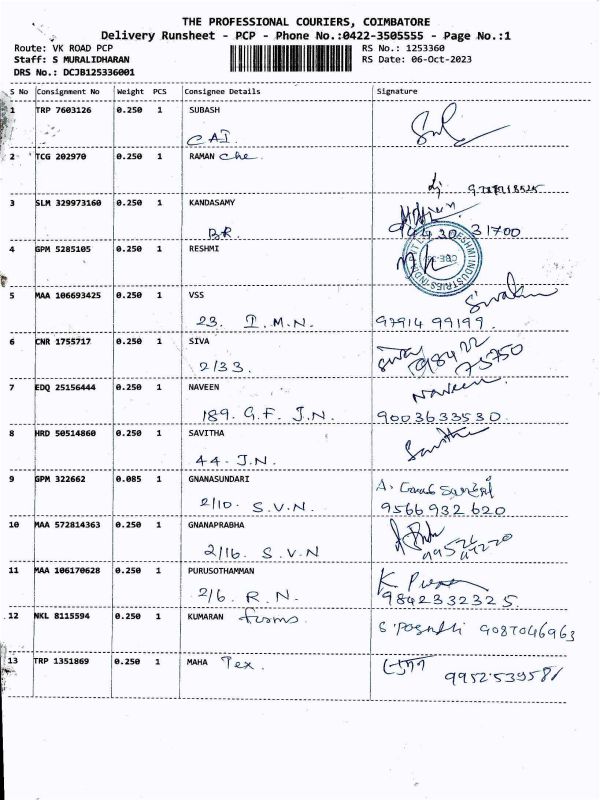 THE PROFESSIONAL COURIERS, COIMBATORE
Delivery Runsheet - PCP - Phone No.:0422-3505555 - Page No.:1
Route: VK ROAD PCP RS No.: 1253360
Staff: S MURALIDHARAN RS Date: 06-Oct-2023
DRS No.: DCJB125336001
S No Consignment No Weight PCS Consignee Details Signature
1 TRP 7603126 0.250 1 SUBASH
CAI
2 TCG 202970 0.250 1 RAMAN che.
3 SLM 329973160 0.250 1 KANDASAMY
BR 94430 31700
4 GPM 5285105 0.250 1 RESHMI
5 MAA 106693425 0.250 1 VSS
23. I.M.N. 97914 99199
6 CNR 1755717 0.250 1 SIVA
2/33. Siva 98422 75750
7 EDQ 25156444 0.250 1 NAVEEN Naveen.
189. G.F. J.N. 9003633530
8 HRD 50514860 0.250 1 SAVITHA
44. J.N. Savitha
9 GPM 322662 0.085 1 GNANASUNDARI
2/10. S.V.N. 9566932620
10 MAA 572814363 0.250 1 GNANAPRABHA
2/16. S.V.N
11 MAA 106170628 0.250 1 PURUSOTHAMMAN
2/6. R.N. 9842332325.
12 NKL 8115594 0.250 1 KUMARAN 9087046963
13 TRP 1351869 0.250 1 MAHA Tex. 9952539581